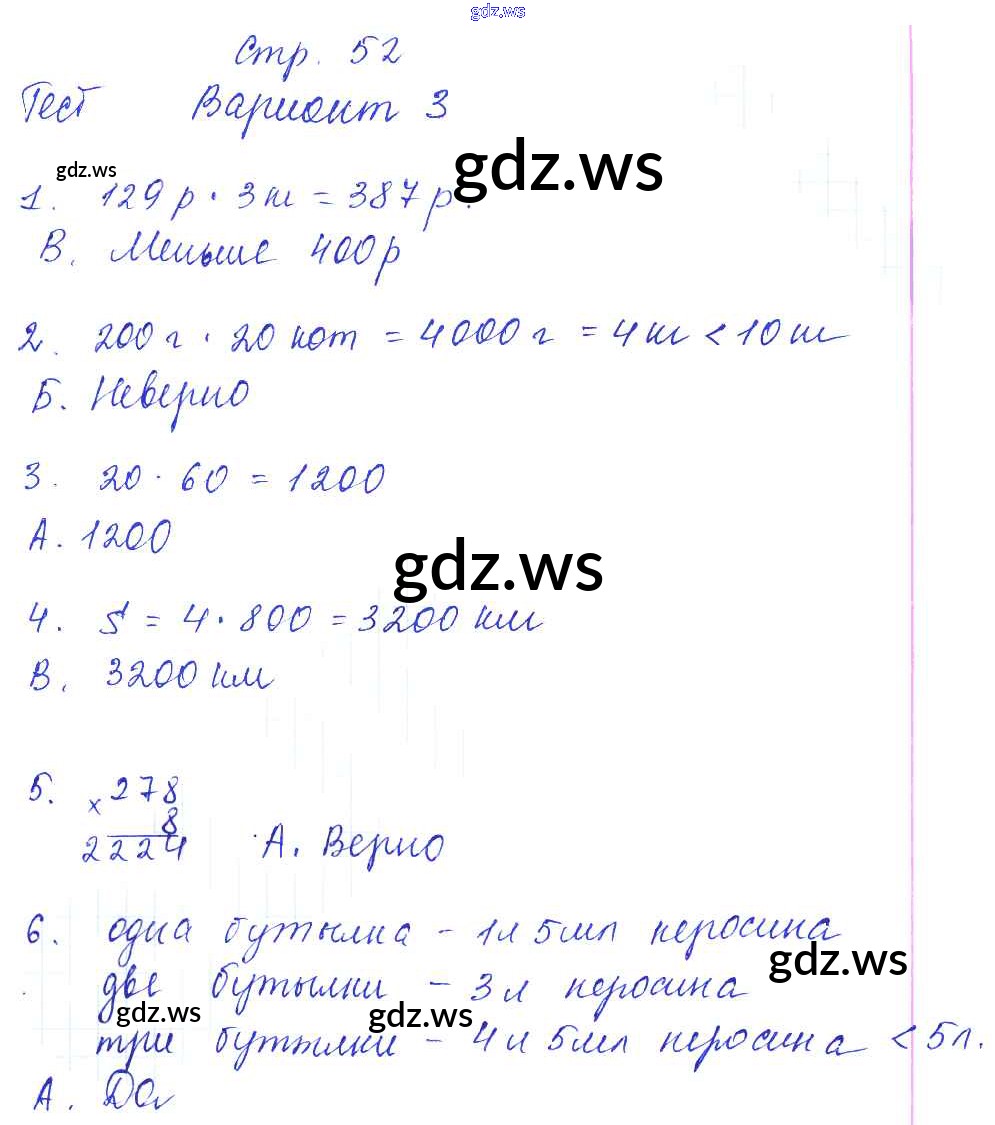 gdz.ws
Стр. 52
Тест Вариант 3
gdz.ws
gdz.ws
1. 129 р · 3 м = 387 р.
В. Меньше 400р
2. 200 г · 20 кот = 4000 г = 4 кг < 10 кг
Б. Неверно
3. 20 · 60 = 1200
А. 1200
gdz.ws
4. S = 4 · 800 = 3200 км
В. 3200 км
5. x 278
8
2224 А. Верно
6. одна бутылка - 1л 5мл керосина
gdz.ws
две бутылки - 3 л керосина
gdz.ws
gdz.ws
три бутылки - 4 л 5мл керосина < 5л.
А. Да